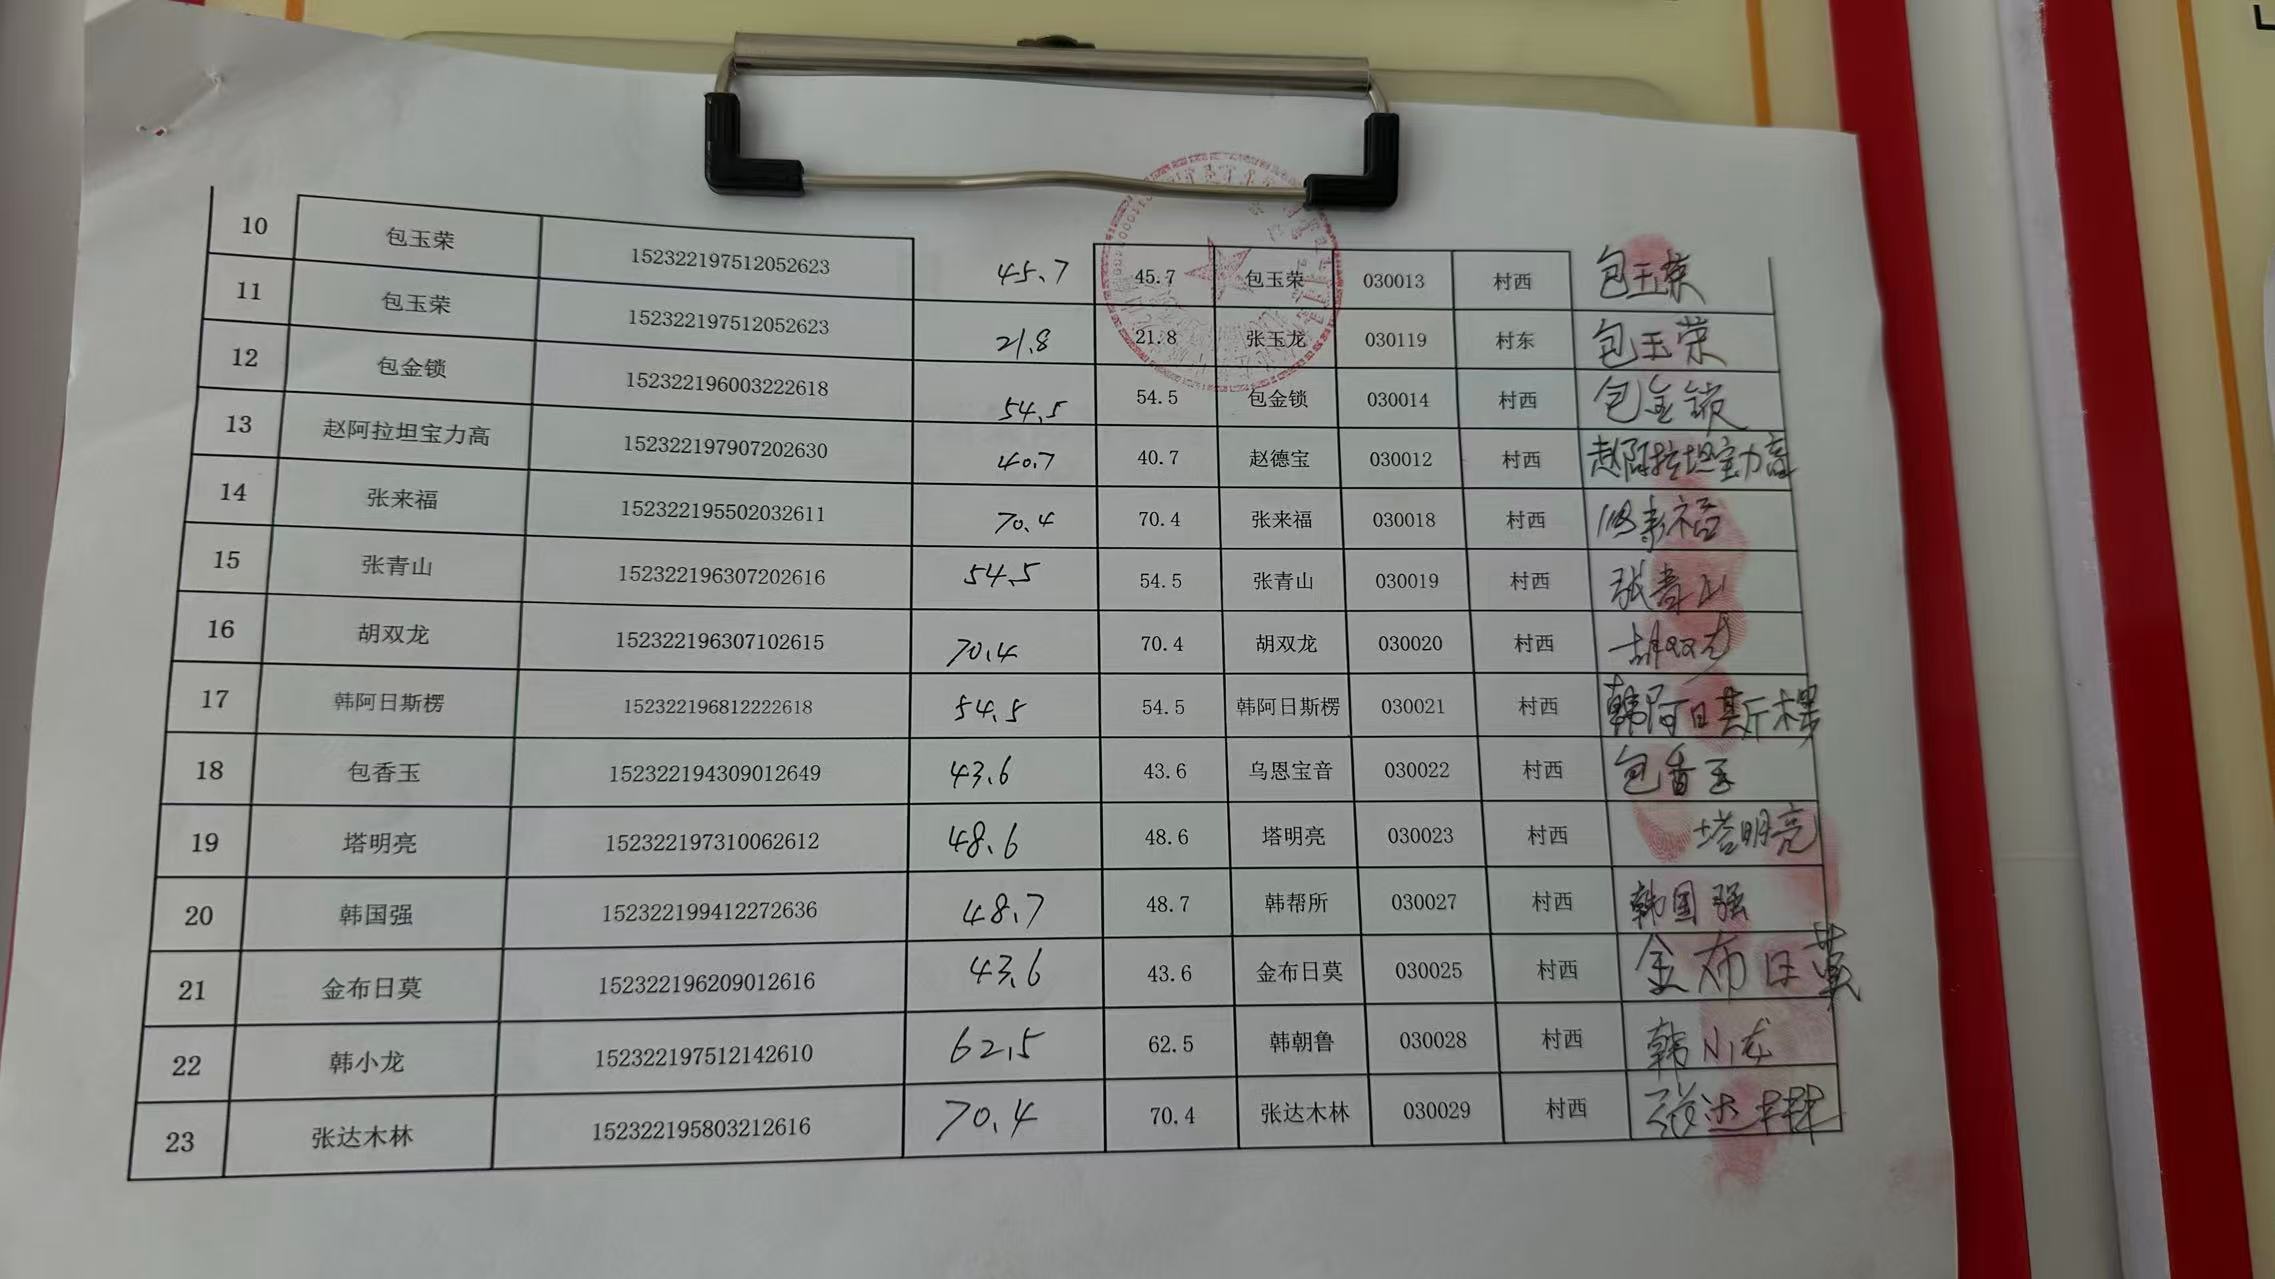 10 包玉荣 152322197512052623 45.7 45.7 包玉荣 030013 村西 包玉荣
11 包玉荣 152322197512052623 21.8 21.8 张玉龙 030119 村东 包玉荣
12 包金锁 152322196003222618 54.5 54.5 包金锁 030014 村西 包金锁
13 赵阿拉坦宝力高 152322197907202630 40.7 40.7 赵德宝 030012 村西 赵阿拉坦宝力高
14 张来福 152322195502032611 70.4 70.4 张来福 030018 村西 张来福
15 张青山 152322196307202616 54.5 54.5 张青山 030019 村西 张青山
16 胡双龙 152322196307102615 70.4 70.4 胡双龙 030020 村西 胡双龙
17 韩阿日斯楞 152322196812222618 54.5 54.5 韩阿日斯楞 030021 村西 韩阿日斯楞
18 包香玉 152322194309012649 43.6 43.6 乌恩宝音 030022 村西 包香玉
19 塔明亮 152322197310062612 48.6 48.6 塔明亮 030023 村西 塔明亮
20 韩国强 152322199412272636 48.7 48.7 韩帮所 030027 村西 韩国强
21 金布日莫 152322196209012616 43.6 43.6 金布日莫 030025 村西 金布日莫
22 韩小龙 152322197512142610 62.5 62.5 韩朝鲁 030028 村西 韩小龙
23 张达木林 152322195803212616 70.4 70.4 张达木林 030029 村西 张达木林